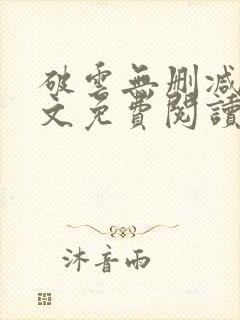 破雲無刪減
文免費閱讀
沐音雨